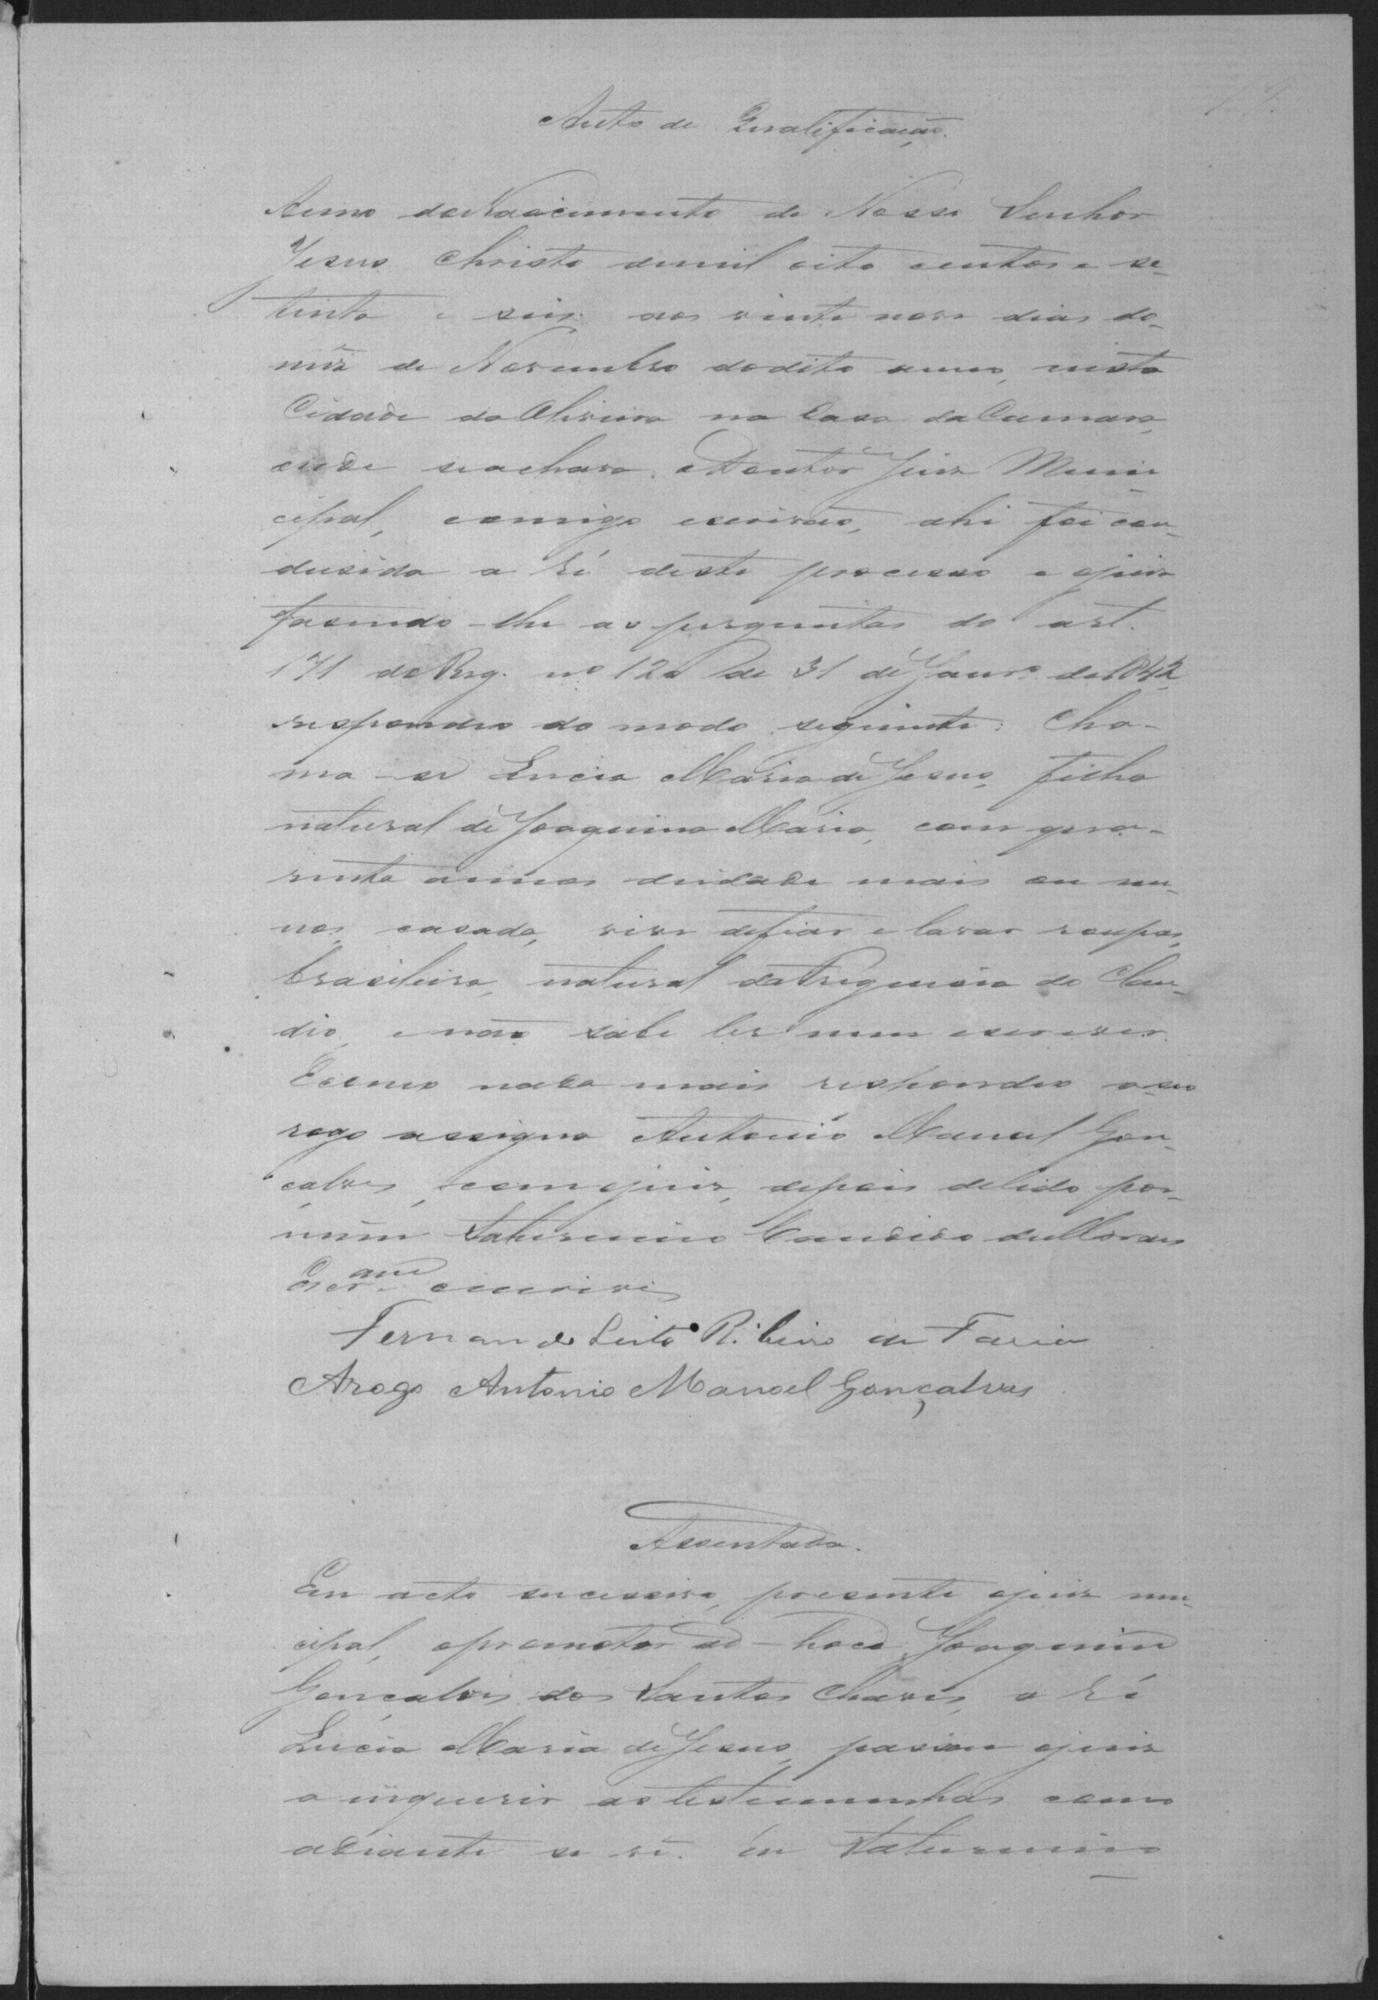 Auto de Qualificação.
Anno do Nascimento de Nosso Senhor
Jesus Christo de mil oito centos e se-
tenta e seis aos vinte nove dias do
mêz de Novembro do dito anno, nesta
Cidade da Oliveira na Casa da Camara,
onde se achava o Doutor Juiz Muni
cipal, comigo escrivão, ahi foi con-
dusida a ré deste processo e o juiz
fasendo-lhe as perguntas do art.
171 do Reg. nº 120 de 31 de Janrº de 1842
respondeo do modo seguinte: Cha-
ma-se Lucia Maria de Jesus, filha
natural de Joaquina Maria, com qua-
renta annos de idade mais ou me-
nos, casada, vive de fiar e lavar roupas,
brasileira, natural da Freguesia do Clau-
dio, e não sabe ler nem escrever.
E como nada mais respondeo a seo
rogo assigna Antonio Manoel Gon-
çalves, com o juiz, depois de lido por
mim Saturnino Candido de Moraes
Escram escrivi
Fernando Leite Ribeiro de Faria
Arogo Antonio Manoel Gonçalves
Assentada.
Em acto sucessivo, presente o juiz mu-
cipal, o promotor ad-hoc Joaquim
Gonçalves dos Santos Chaves, a ré
Lucia Maria de Jesus, passou o juiz
a inquerir as testemunhas como
adiante se vê. Eu Saturnino